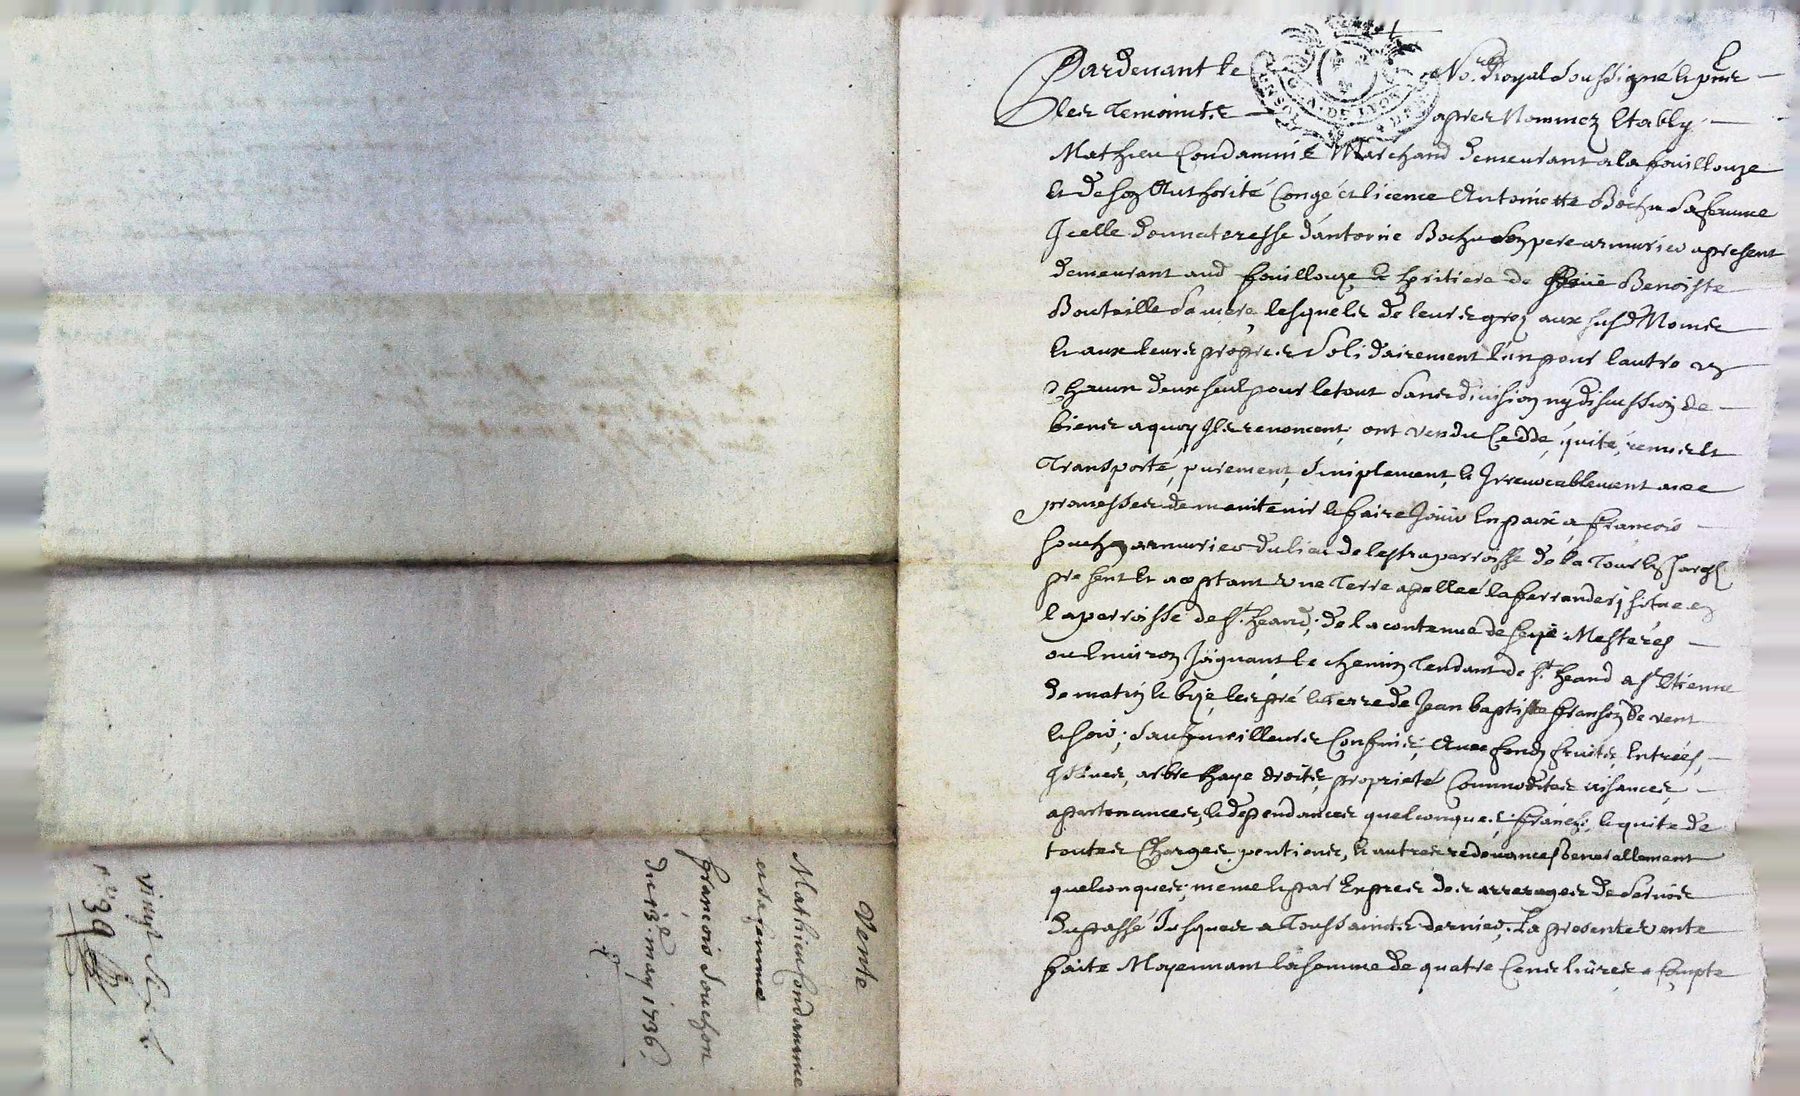 Vente
Mathieu Condamine
et sa femme
François Souchon
Du 13e. may 1736.
vingt
n° 39
Pardevant le No.re Royal soussigné et pnts
les Temoins apres Nommez Etably
Mathieu Condamine Marchand demeurant a la fouillouze
et de son Authorité Congé et licence Antoinette Bochu sa femme
Icelle donnateresse d'antoine Bochu son pere armurier a present
demeurant aud fouillouze et heritiere de Benoiste
Boutaille sa mere, lesquels de leurs grez aux susd Noms
et aux leurs propres solidairement l'un pour l'autre un
chacun d'eux seul pour le tout sans division ny discussion de
biens a quoy Ils renoncent, ont vendu Cedde, quité, remis et
Transporté, purement, simplement, et Irrevocablement avec
promesses de maintenir et faire Jouir En paix a françois
souchon armurier du lieu de lestra parroisse de la Tour En Jarest
present et aceptant une Terre apellée la ferrandery située en
la parroisse de st. heand, de la contenue de Mesterés
ou Environ Joignant le chemin Tendant de st. heand a st. Etienne
de matin et bize, les pré et Terre de Jean baptiste franson de vent
et soir, sauf meilleurs Confins, Avec fonds fruits, Entrées,
Issues, arbre haye droits, proprieté Commodités aisances,
apartenances, et dependances quelconques, franche, et quite de
toutes Charges pentions, et autres redevances Generallement
quelconques, meme et par Exprés des arrerages de servis
du passé Jusques a Toussaints dernier. La presente vente
faite Moyennant la somme de quatre Cens livres a Compte